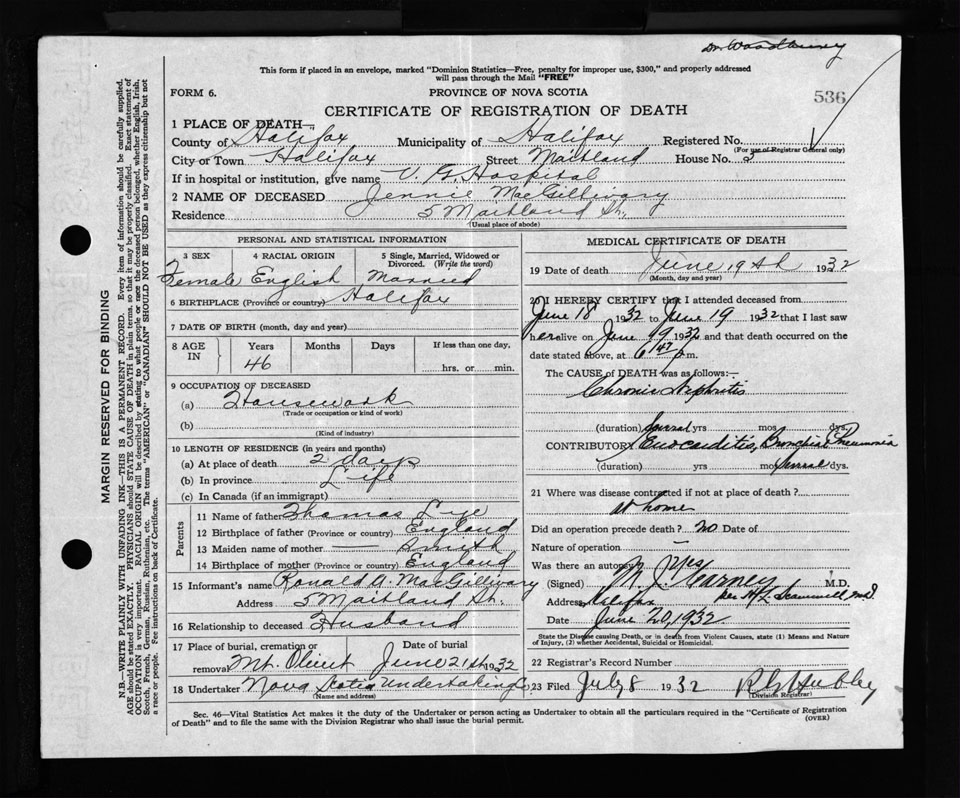 This form if placed in an envelope, marked "Dominion Statistics—Free, penalty for improper use, $300," and properly addressed
will pass through the Mail "FREE"
FORM 6.
PROVINCE OF NOVA SCOTIA
536
CERTIFICATE OF REGISTRATION OF DEATH
1 PLACE OF DEATH—
County of Halifax Municipality of Halifax Registered No.
(For use of Registrar General only)
City or Town Halifax Street Maitland House No. 5
If in hospital or institution, give name V. G. Hospital
2 NAME OF DECEASED Jennie MacGillivary
Residence 5 Maitland St.
(Usual place of abode)
PERSONAL AND STATISTICAL INFORMATION
3 SEX 4 RACIAL ORIGIN 5 Single, Married, Widowed or Divorced. (Write the word)
Female English Married
6 BIRTHPLACE (Province or country) Halifax
7 DATE OF BIRTH (month, day and year)
8 AGE IN Years Months Days If less than one day,
46 hrs. or min.
9 OCCUPATION OF DECEASED
(a) Housework
(Trade or occupation or kind of work)
(b)
(Kind of industry)
10 LENGTH OF RESIDENCE (in years and months)
(a) At place of death 2 days
(b) In province Life
(c) In Canada (if an immigrant)
Parents
11 Name of father Thomas Lye
12 Birthplace of father (Province or country) England
13 Maiden name of mother — Smith
14 Birthplace of mother (Province or country) England
15 Informant's name Ronald A. MacGillivary
Address 5 Maitland St.
16 Relationship to deceased Husband
17 Place of burial, cremation or removal Date of burial
Mt. Olivet June 21st 1932
18 Undertaker Nova Scotia Undertaking Co.
(Name and address)
MEDICAL CERTIFICATE OF DEATH
19 Date of death June 19th 1932
(Month, day and year)
20 I HEREBY CERTIFY that I attended deceased from
June 18 1932 to June 19 1932 that I last saw
her alive on June 19 1932 and that death occurred on the
date stated above, at 6 47 p.m.
The CAUSE of DEATH was as follows:—
Chronic Nephritis
(duration) several yrs mos dys.
CONTRIBUTORY Endocarditis, Bronchial Pneumonia
(duration) yrs mos several dys.
21 Where was disease contracted if not at place of death?
At home
Did an operation precede death? no Date of
Nature of operation —
Was there an autopsy? Yes
(Signed) M. J. Kearney M.D.
Address Halifax per
Date June 20, 1932
State the Disease causing Death, or in death from Violent Causes, state (1) Means and Nature of Injury, (2) whether Accidental, Suicidal or Homicidal.
22 Registrar's Record Number
23 Filed July 8 1932 Hubley
(Division Registrar)
Sec. 46—Vital Statistics Act makes it the duty of the Undertaker or person acting as Undertaker to obtain all the particulars required in the "Certificate of Registration
of Death" and to file the same with the Division Registrar who shall issue the burial permit.
(OVER)
MARGIN RESERVED FOR BINDING
N.B.—WRITE PLAINLY WITH UNFADING INK—THIS IS A PERMANENT RECORD. Every item of information should be carefully supplied.
AGE should be stated EXACTLY. PHYSICIANS should STATE CAUSE OF DEATH in plain terms, so that it may be properly classified. Exact statement of
OCCUPATION is very important. RACIAL ORIGIN will be described by stating to what people or race the deceased person belonged, whether English, Irish,
Scotch, French, German, Russian, Ruthenian, etc. The terms "AMERICAN" or "CANADIAN" SHOULD NOT BE USED as they express citizenship but not
a race or people. See instructions on back of Certificate.